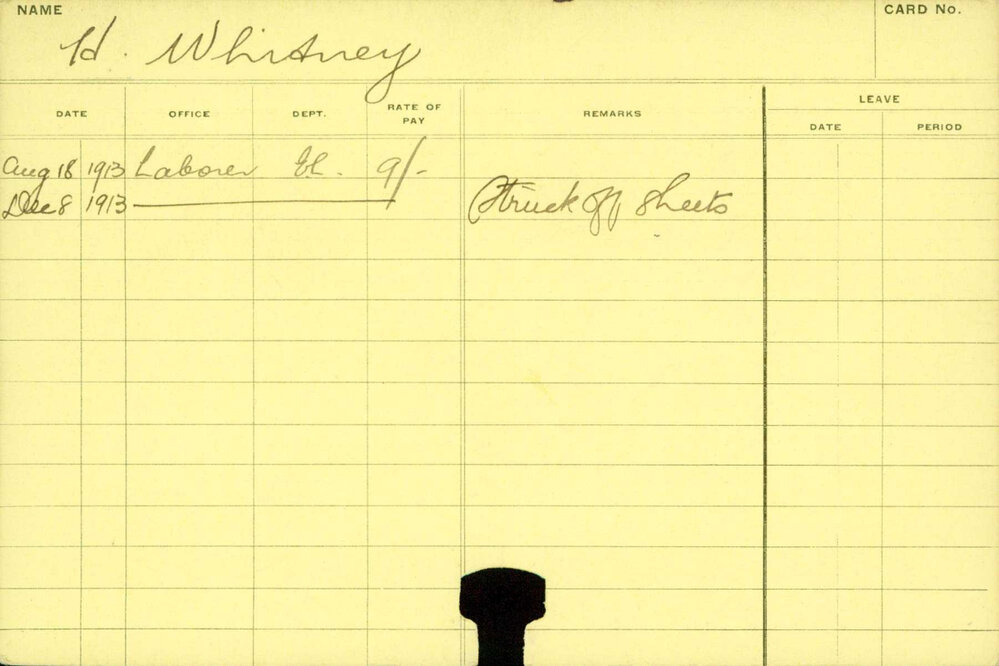 NAME
CARD No.
H. Whitney
LEAVE
DATE OFFICE DEPT. RATE OF PAY REMARKS DATE PERIOD
Aug 18 1913 Laborer El. 9/-
Dec 8 1913 Struck off Sheets